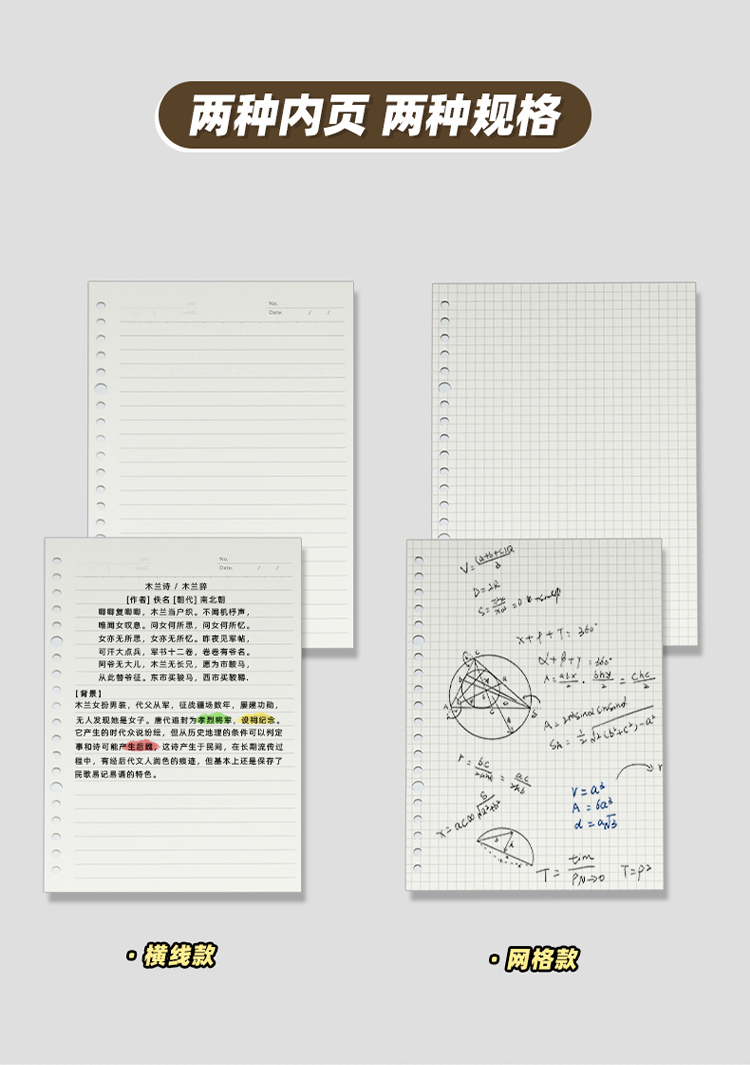 两种内页 两种规格
No.
Date. / /
No.
Date. / /
木兰诗 / 木兰辞
[作者] 佚名 [朝代] 南北朝
唧唧复唧唧，木兰当户织。不闻机杼声，
唯闻女叹息。问女何所思，问女何所忆。
女亦无所思，女亦无所忆。昨夜见军帖，
可汗大点兵，军书十二卷，卷卷有爷名。
阿爷无大儿，木兰无长兄，愿为市鞍马，
从此替爷征。东市买骏马，西市买鞍鞯，
【背景】
木兰女扮男装，代父从军，征战疆场数年，屡建功勋，
无人发现她是女子。唐代追封为孝烈将军，设祠纪念。
它产生的时代众说纷纭，但从历史地理的条件可以判定
事和诗可能产生后魏，这诗产生于民间，在长期流传过
程中，有经后代文人润色的痕迹，但基本上还是保存了
民歌易记易诵的特色。
D=2R
x+β+T=360°
α+β+γ=360°
V=a³
A=6a²
d=a√3
· 横线款
· 网格款